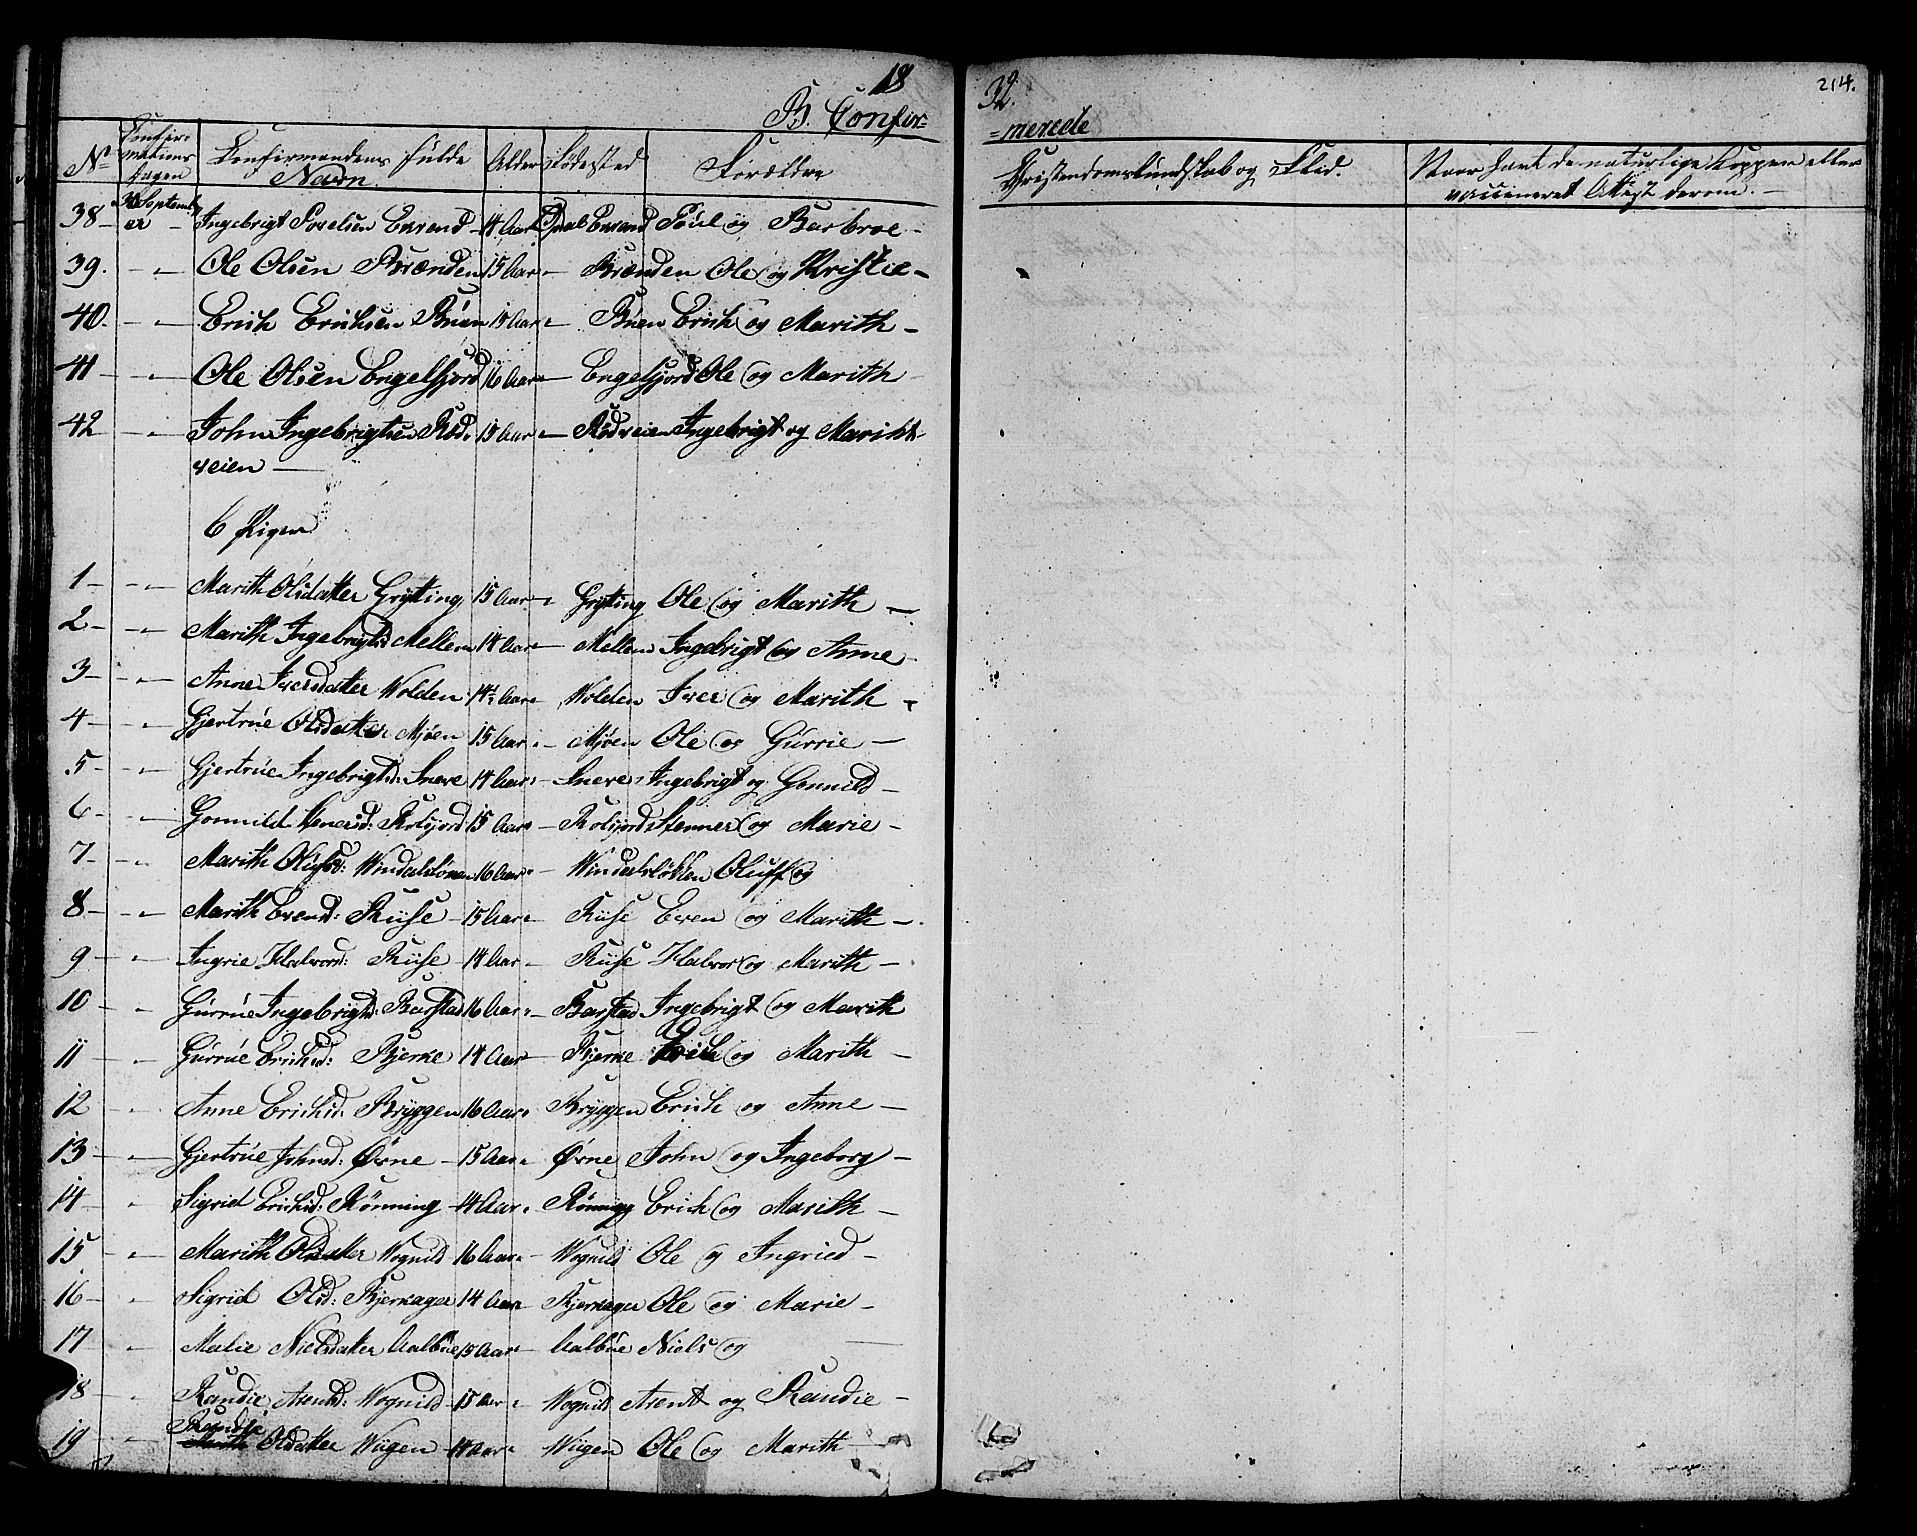 18
32.
214.
B. Confir=
=merede
No
Confir=
mations
Dagen
Confirmandens fulde
Navn.
Alder
Fødested
Forældre
Christendomskundskab og Flid.
Naar havt de naturlige Kopper eller
vaccineret Attest derom. -
38 - 30 September - Ingebrigt Enevend - 14 Aar Enevend Poul og Barbroe -
39. - " - Ole Olsen Brænden 15 Aar " - Brænden Ole og Kristie -
40. - " - Erich Erichsen Büen 15 Aar " - Büen Erich og Marith -
41 - " - Ole Olsen Engelsjord 16 Aar " - Engelsjord Ole og Marith
42 - " - John Ingebrigtsen Rød= 15 Aar " - Rødveien Ingebrigt og Marith
veien -
6 Piger
1 - " - Marith Olsdatter Gryting 15 Aar " Gryting Ole og Marith -
2 - " - Marith Ingebrigtsd Mellem 14 Aar - Mellem Ingebrigt og Anne
3 - " - Anne Iversdatter Wolden 14½ Aar " Wolden Iver og Marith -
4 - " - Gjertrue Olsdatter Mjøen 15 Aar " - Mjøen Ole og Gurrie -
5 - " - Gjertrue Ingebrigtsd: Sneve 14 Aar " - Sneve Ingebrigt og Gonnild -
6 - " - Gonnild Stenersd: Rolsjord 15 Aar " - Rolsjord Stenner og Marie -
7 - " Marith Olufsd: 16 Aar " - Windalsløkken Oluff og
8 - " - Marith Evensd: Riise - 15 Aar " Riise Even og Marith -
9 - " - Ingrie Halvorsd: Riise 14 Aar - Riise Halvor og Marith -
10 - " Gurrue Ingebrigtsd. Barstad 16 Aar " - Barstad Ingebrigt og Marith
11 - " Gurrue Erichsd: Bjerke 14 Aar - Bjerke Erich og Marith -
12 - " Anne Erichsd: Bryggen 16 Aar " Bryggen Erich og Anne -
13 - " Gjertrue Johnsd: Ørne - 15 Aar " Ørne John og Ingeborg -
14 - " Sigrid Erichsd: Rønning - 14 Aar " Rønning Erich og Marith -
15 - " Marith Olsdatter Wognild 16 Aar " - Wognild Ole og Ingried -
16 - " Sigrid Olsd: Bjerkager 14 Aar Bjerkager Ole og Marie -
17 - " Malie Nielsdatter Aalbue 15 Aar - Aalbue Niels og -
18 - " Randie Asentsd: Wognild - 15 Aar " Wognild Asent og Randie -
Randie
19 - " Marith Olsdatter Wiigen - 14 Aar " Wiigen Ole og Marith -